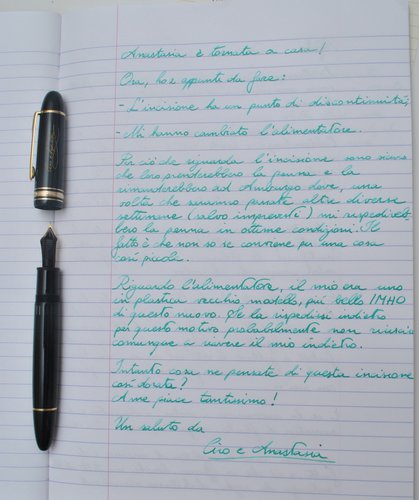 Anastasia è tornata a casa!
Ora, ho 2 appunti da fare:
- L'incisione ha un punto di discontinuità;
- Mi hanno cambiato l'alimentatore.
Per ciò che riguarda l'incisione sono sicuro
che loro prenderebbero la penna e la
rimanderebbero ad Amburgo dove, una
volta che saranno passate altre diverse
settimane (salvo imprevisti) mi rispedireb-
bero la penna in ottime condizioni. Il
fatto è che non so se conviene per una cosa
così piccola.
Riguardo l'alimentatore, il mio era uno
in plastica vecchio modello, più bello IMHO
di questo nuovo. Se la rispedissi indietro
per questo motivo probabilmente non riuscirei
comunque a riavere il mio indietro.
Intanto cosa ne pensate di questa incisione
così dorata?
A me piace tantissimo!
Un saluto da
Ciro e Anastasia